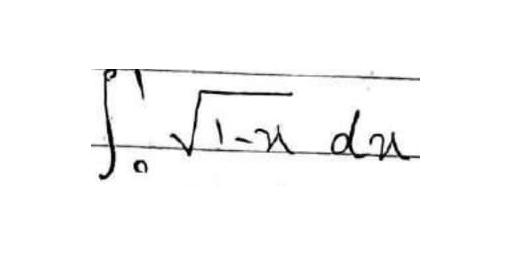 ∫₀¹ √(1-x) dx